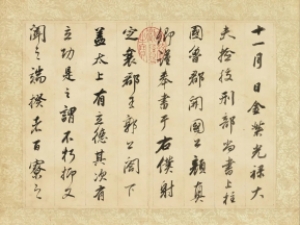 十一月日金紫光祿大
夫撿挍刑部尚書上柱
國魯郡開國公顏真
卿謹奉書于右僕射
定襄郡王郭公閣下
蓋太上有立德其次有
立功是之謂不朽抑又
聞之端揆者百寮之